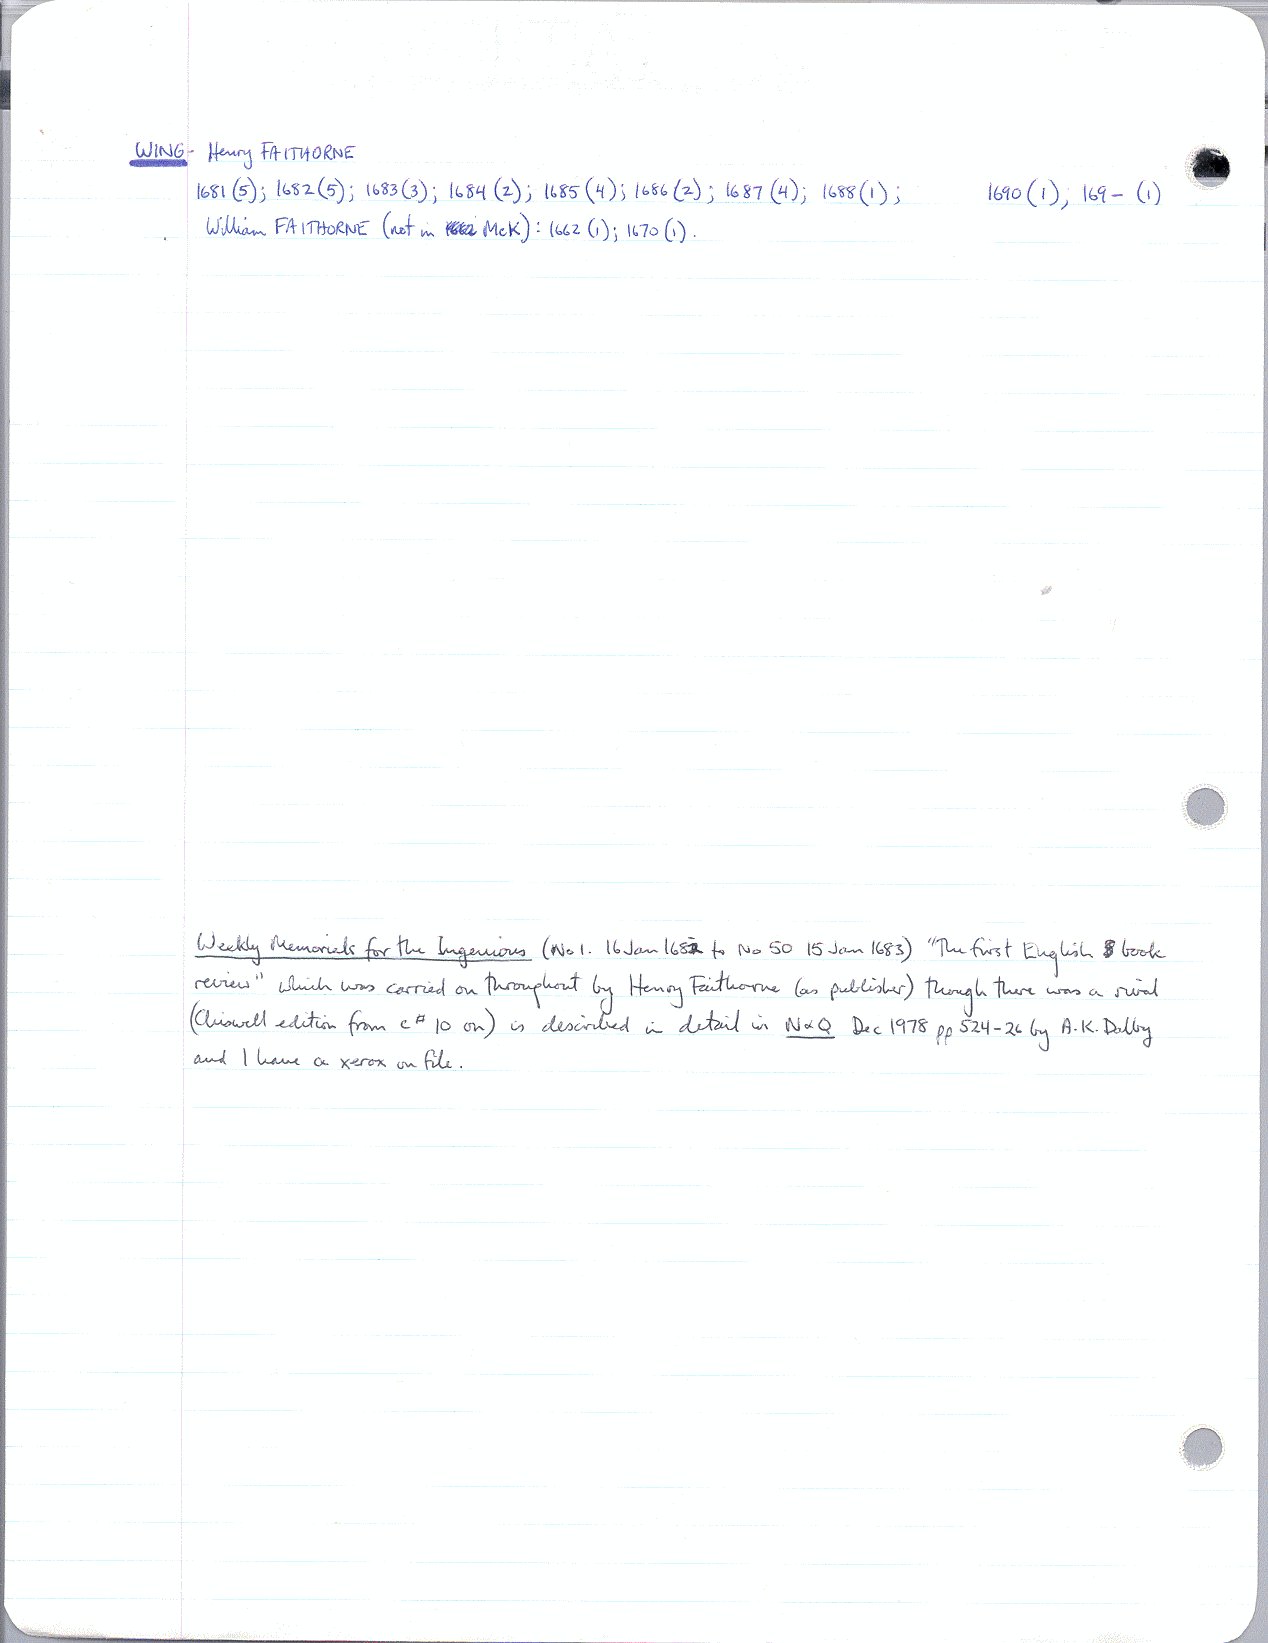 WING - Henry FAITHORNE
1681 (5); 1682 (5); 1683 (3); 1684 (2); 1685 (4); 1686 (2); 1687 (4); 1688 (1); 1690 (1); 169- (1)
William FAITHORNE (not in McK): 1662 (1); 1670 (1).
Weekly Memorials for the Ingenious (No 1. 16 Jan 1682 to No 50 15 Jan 1683) "The first English book
review" which was carried on throughout by Henry Faithorne (as publisher) though there was a rival
(Chiswell edition from c # 10 on) is described in detail in N&Q Dec 1978 pp 524-26 by A.K. Dalby
and I have a xerox on file.